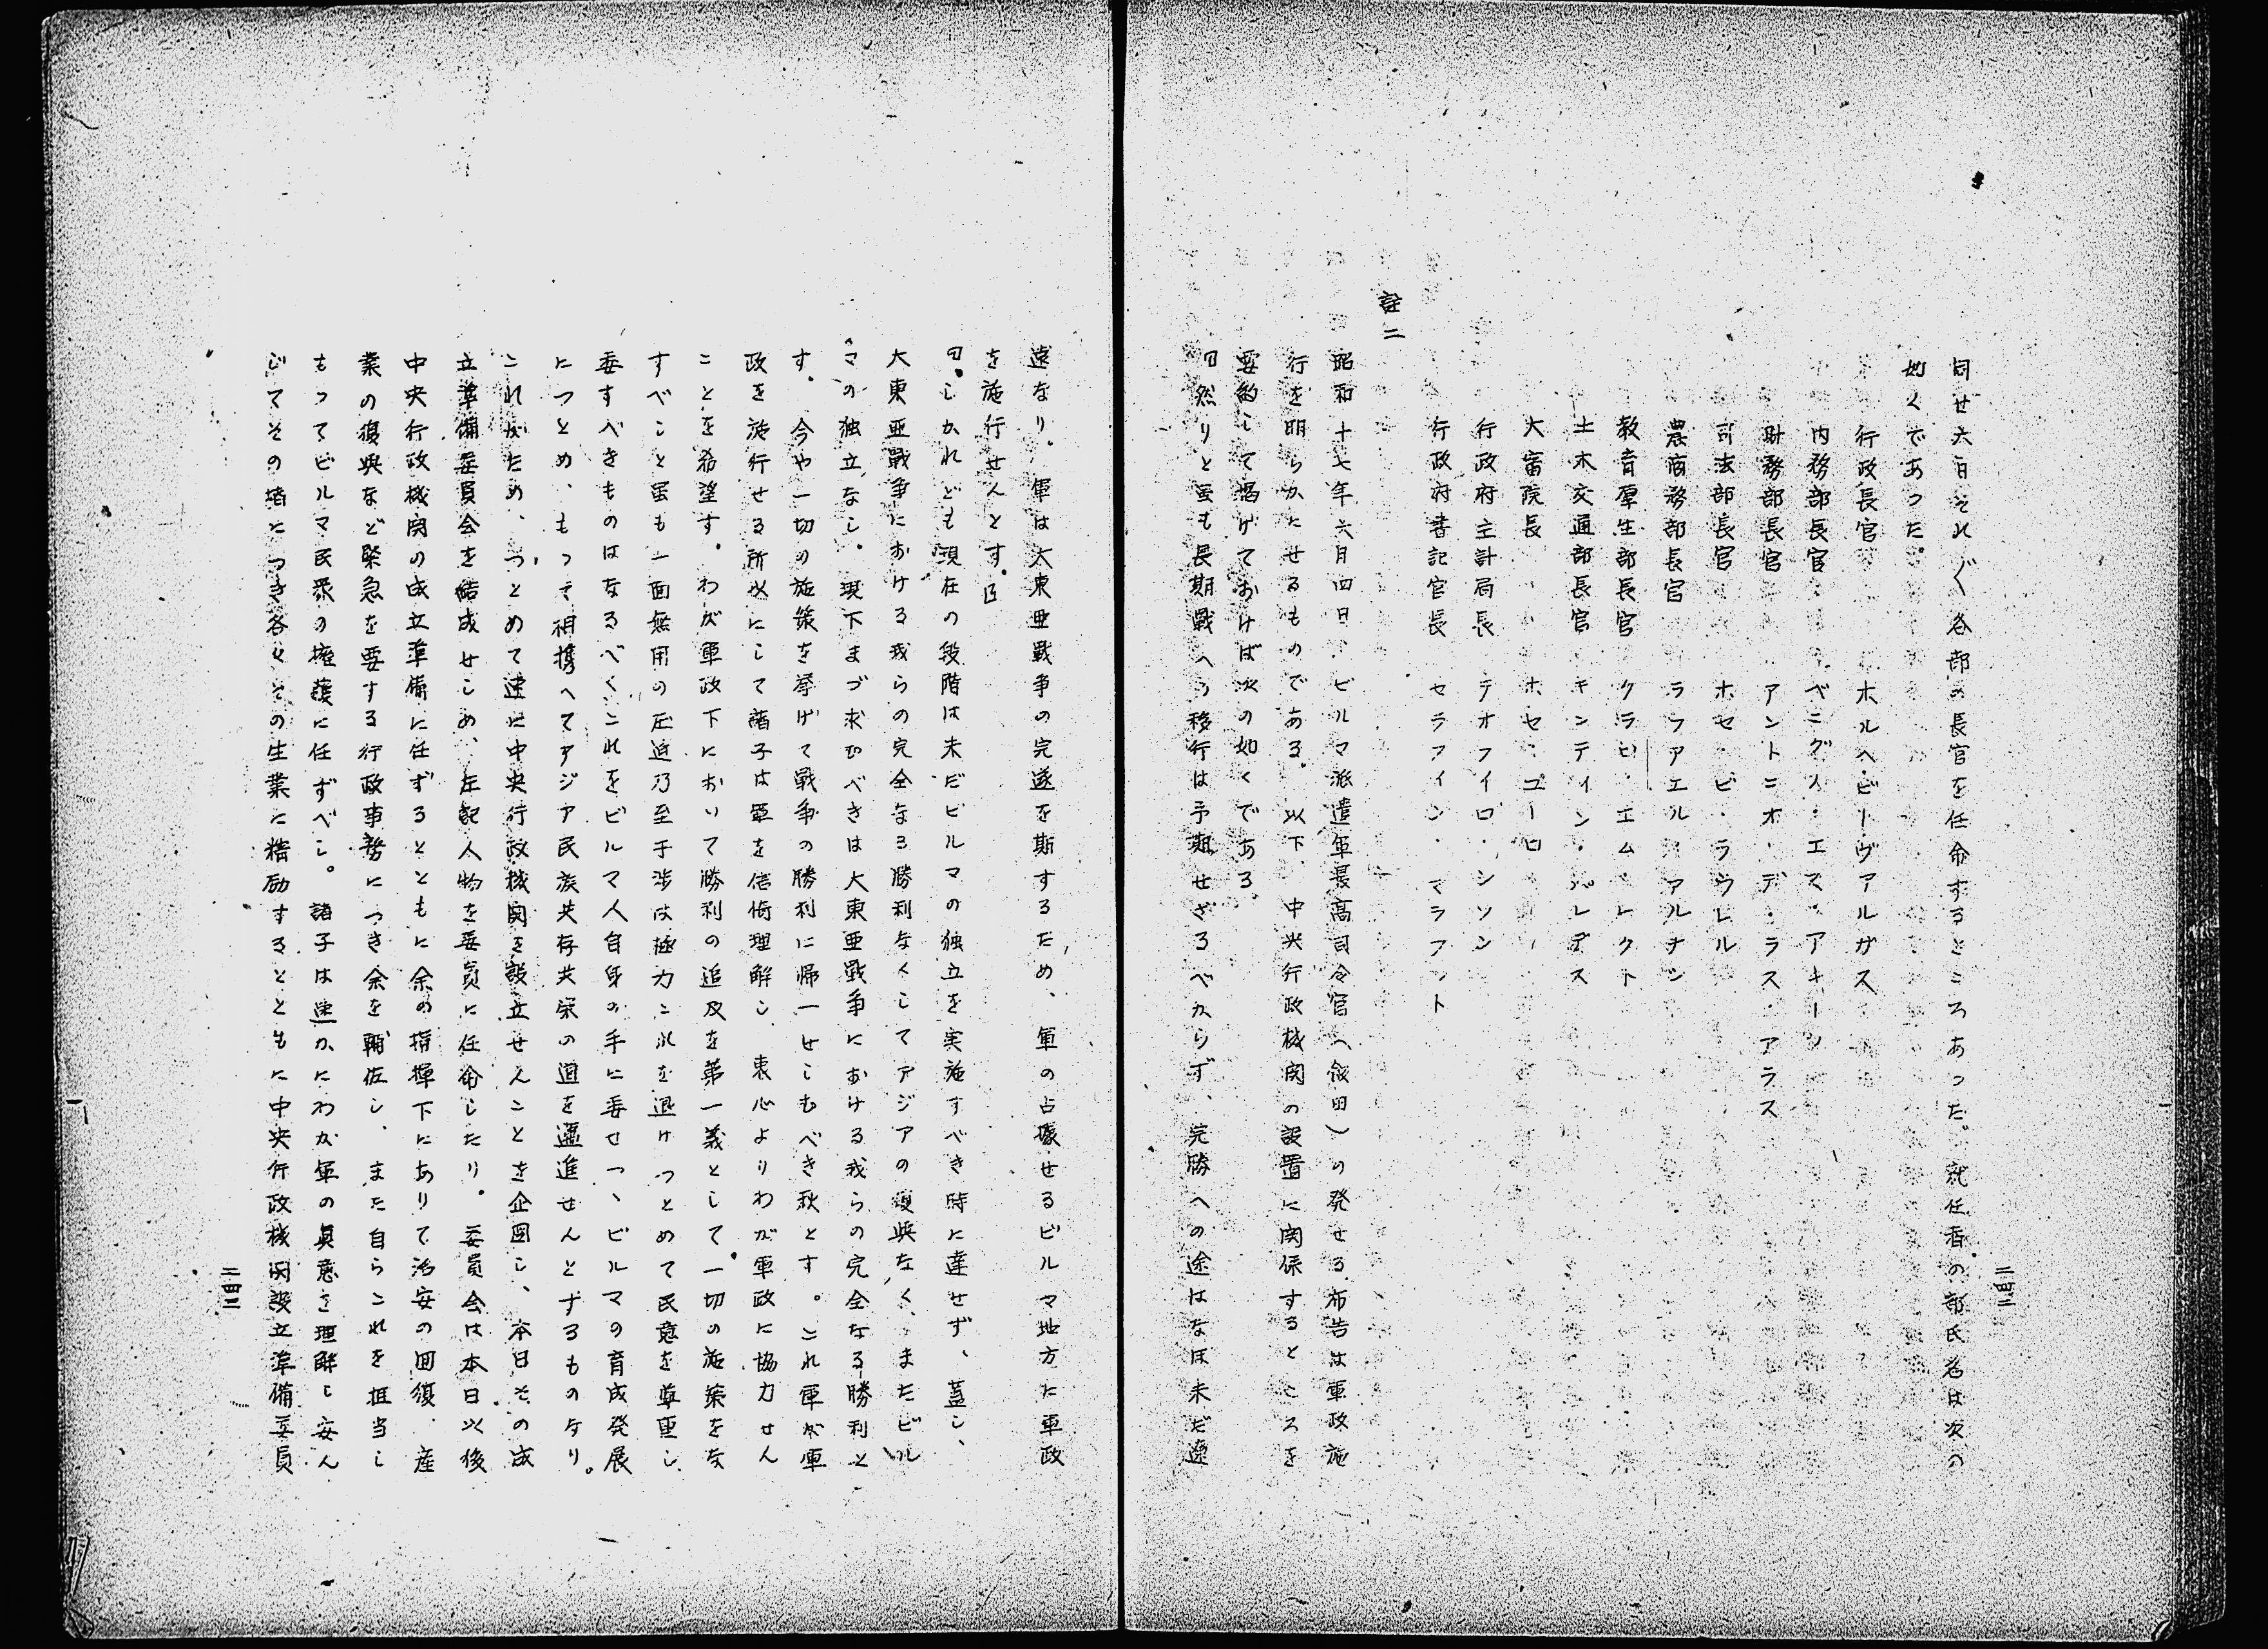 同廿六日それ〲各部の長官を任命するところあつた。就任者の部氏名は次の
如くであつた。
行政長官　ホルヘ・ビー・ヴァルガス
内務部長官　ベニグノ・エス・アキーノ
財務部長官　アントニオ・デ・ラス・アラス
司法部長官　ホセ・ピ・ラウレル
農商務部長官　ラファエル・アルナン
教育厚生部長官　クラロ・エム・レクト
土木交通部長官　キンティン・パレデス
大審院長　ホセ・ユーロ
行政府主計局長　テオフイロ・シソン
行政府書記官長　セラフィン・マラフット
註二
昭和十七年六月四日、ビルマ派遣軍最高司令官（飯田）の発せる布告は軍政施
行を明らかにせるものである。以下 中央行政機関の設置に関係するところを
要約して掲げておけば次の如くである。
「然りと虽も長期戦への移行は予期せざるべからず、完勝への途はなほ未だ遼
遠なり。軍は大東亜戰争の完遂を期するため、軍の占據せるビルマ地方に軍政
を施行せんとす。」
「しかれども現在の段階は未だビルマの独立を実施すべき時に達せず、蓋し、
大東亜戰争における我らの完全なる勝利なくしてアジアの復興なく、またビル
マの独立なし。現下まづ求むべきは大東亜戰争における我らの完全なる勝利と
す。今や一切の施策を挙げて戰争の勝利に帰一せしむべき秋とす。これ軍が軍
政を施行せる所以にして諸子は軍を信倚理解し、衷心よりわが軍政に協力せん
ことを希望す。わが軍政下において勝利の追及を第一義として一切の施策をな
すべしと虽も一面無用の圧迫乃至干渉は極力これを避けつとめて民意を尊重し、
委すべきものはなるべくこれをビルマ人自身の手に委せつゝビルマの育成発展
につとめ、もつて相携へてアジア民族共存共栄の道を邁進せんとするものなり。
これがため、つとめて速に中央行政機関を設立せんことを企図し、本日その成
立準備委員会を結成せしめ、左記人物を委員に任命したり。委員会は本日以後
中央行政機関の成立準備に任ずるとともに余の指揮下にありて治安の回復、産
業の復興など緊急を要する行政事務につき余を輔佐し、また自らこれを担当し
もつてビルマ民衆の擁護に任ずべし。諸子は速かにわが軍の眞意を理解し安ん
じてその堵につき各々その生業に精励するとともに中央行政機関設立準備委員
二四二
二四三